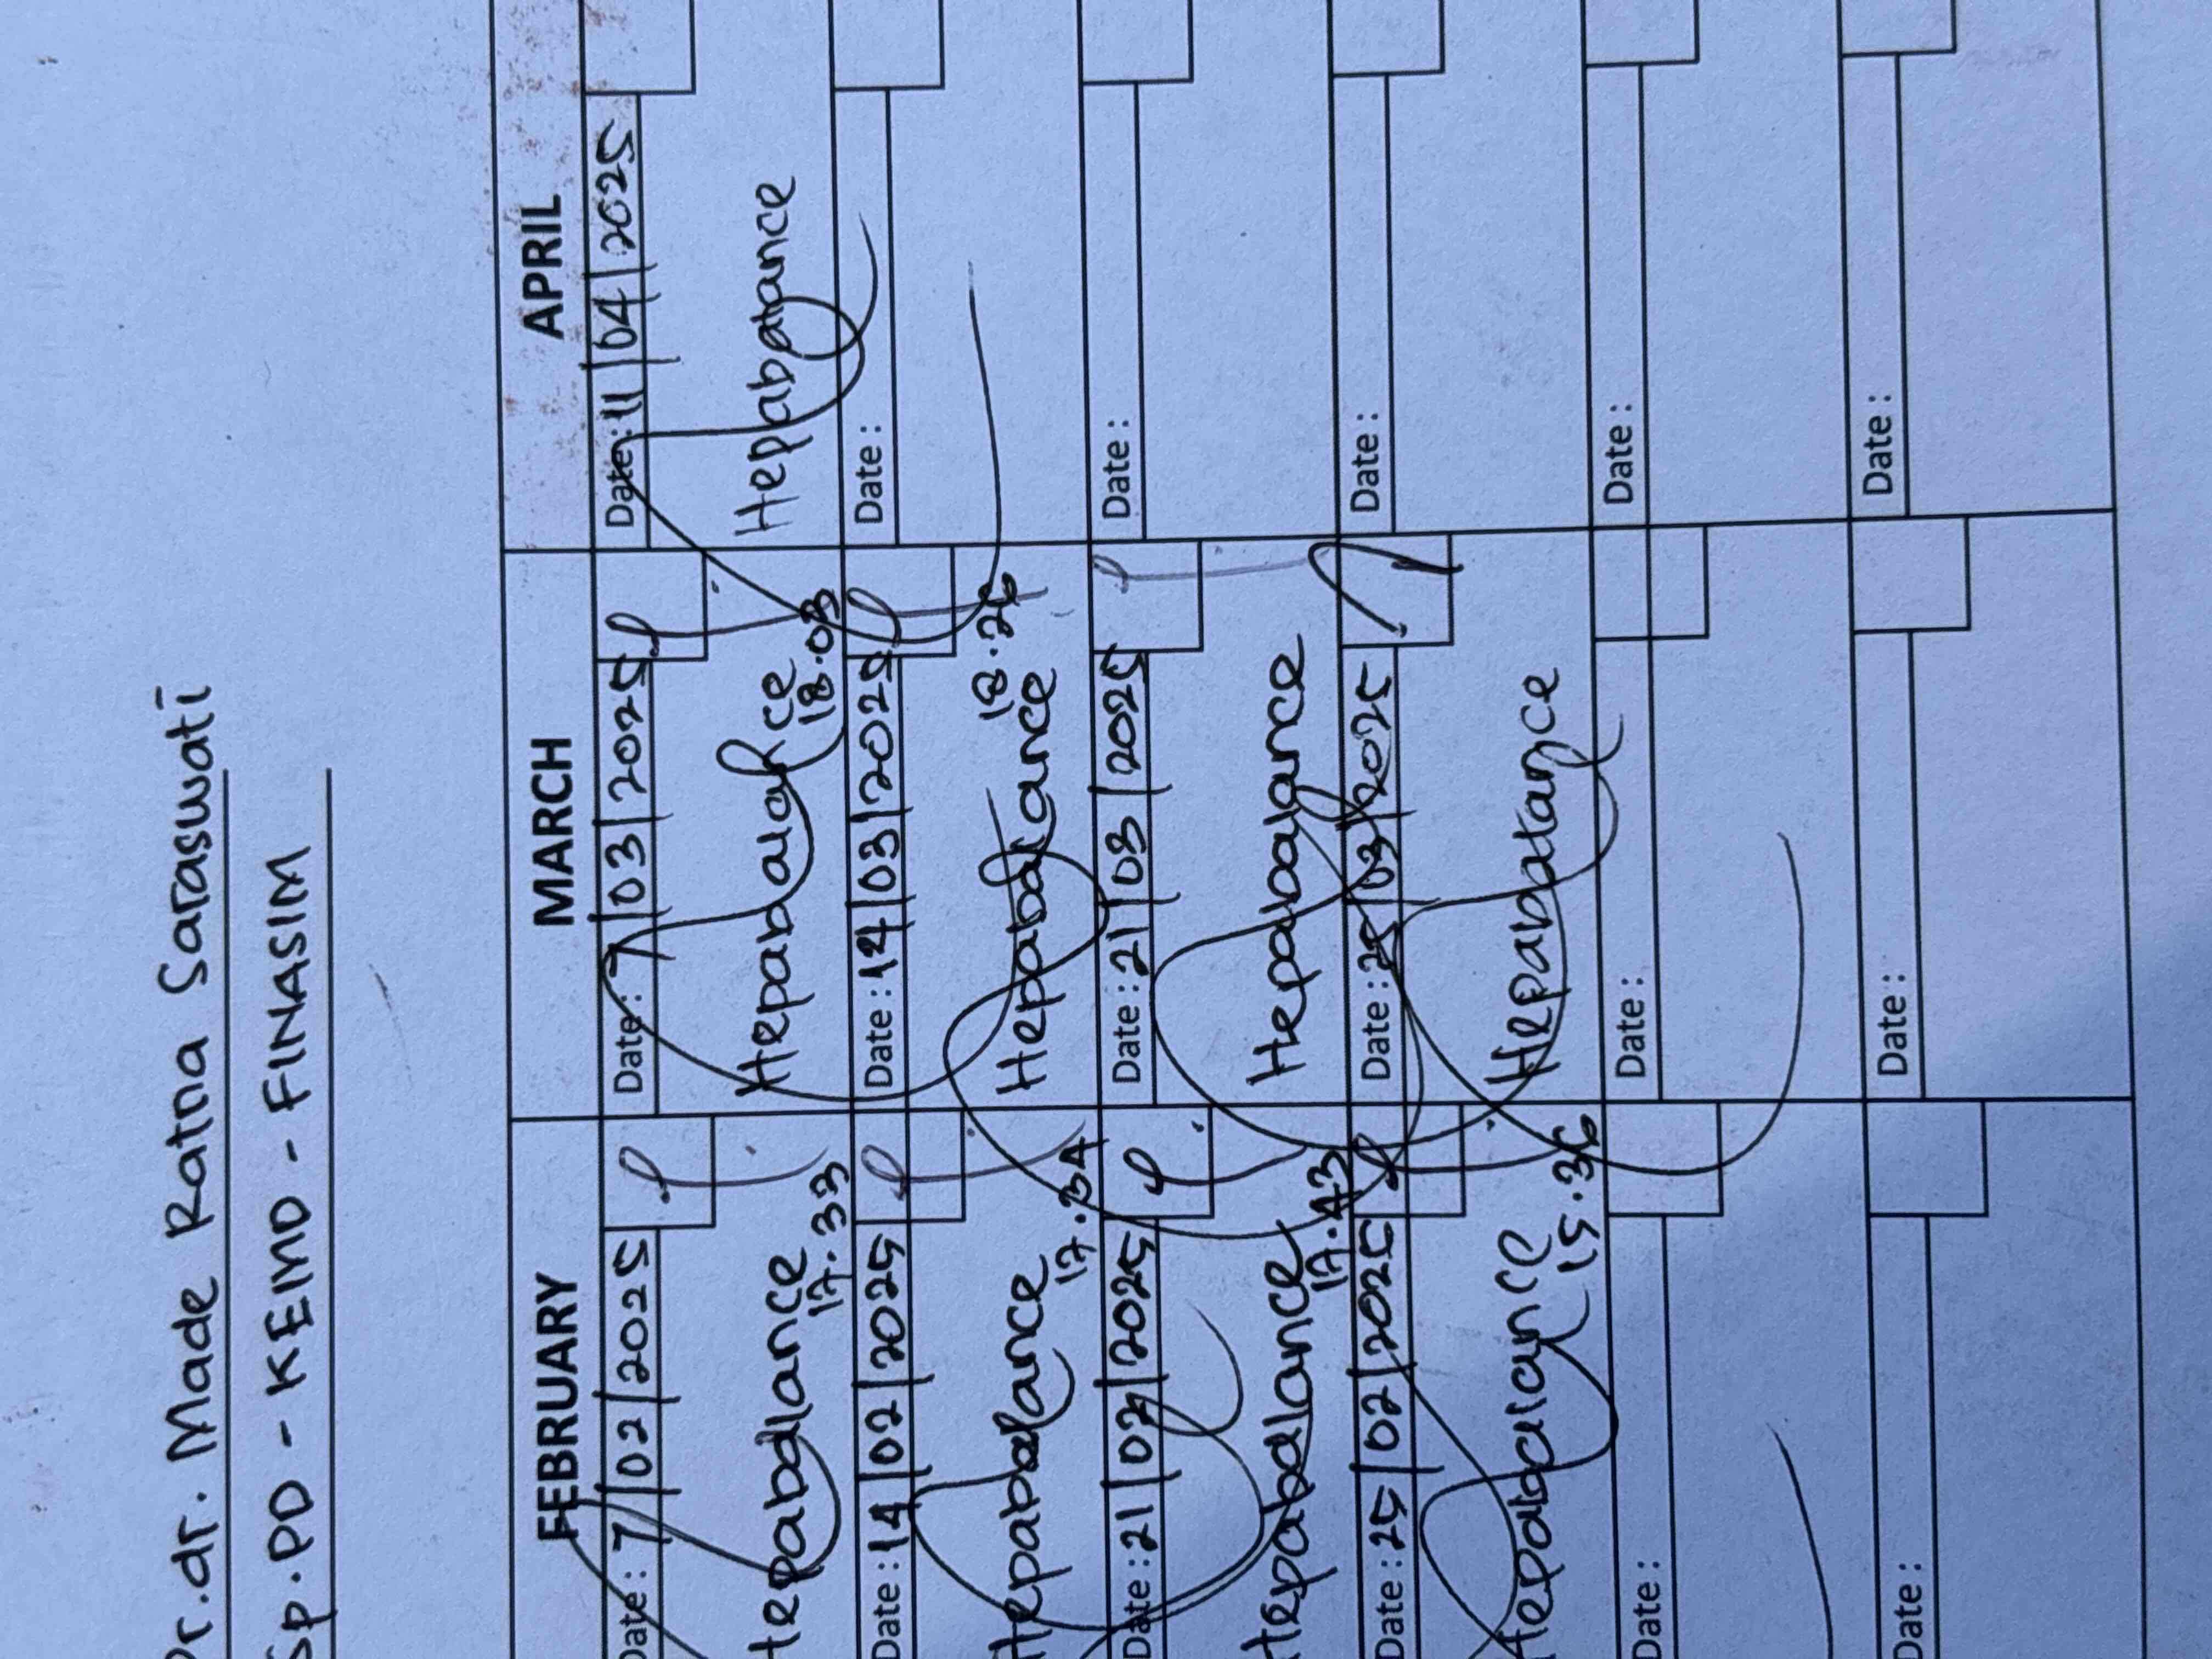 Dr.dr. Made Ratna Saraswati
Sp.PD - KEMD - FINASIM
FEBRUARY
Date: 7/02/2025
Hepabalance
17.33
Date: 14/02/2025
Hepabalance
17.34
Date: 21/02/2025
Hepabalance
17.43
Date: 25/02/2025
Hepabalance
15.36
Date:
Date:
MARCH
Date: 7/03/2025
Hepabalance
18.03
Date: 14/03/2025
18.26
Hepabalance
Date: 21/03/2025
Hepabalance
Date: /03/2025
Hepabalance
Date:
Date:
APRIL
Date: 11/04/2025
Hepabalance
Date:
Date:
Date:
Date:
Date: